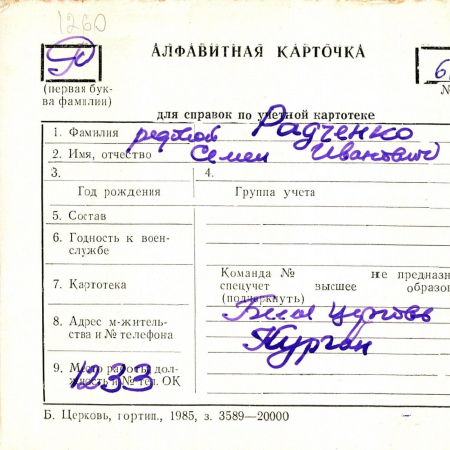 1260
Р
АЛФАВИТНАЯ КАРТОЧКА
6
(первая бук-
ва фамилии)
№
для справок по учетной картотеке
1. Фамилия Радченко
2. Имя, отчество Семен Иванович
3.
4.
Год рождения
Группа учета
5. Состав
6. Годность к воен-
службе
7. Картотека
Команда № не предназн
спецучет высшее образов
(подчеркнуть)
8. Адрес м-житель-
ства и № телефона
Курган
9. Место работы, дол-
жность и № тел. ОК
1233
Б. Церковь, гортип., 1985, з. 3589—20000